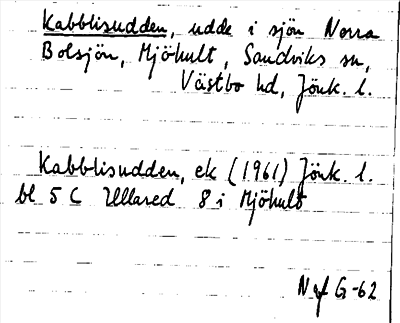 Kabblisudden, udde i sjön Norra
Bolsjön, Mjöhult, Sandviks sn,
Västbo hd, Jönk. l.
Kabblisudden, ek (1961) Jönk. l.
bl 5 C Ullared 8 i Mjöhult
Naf G-62